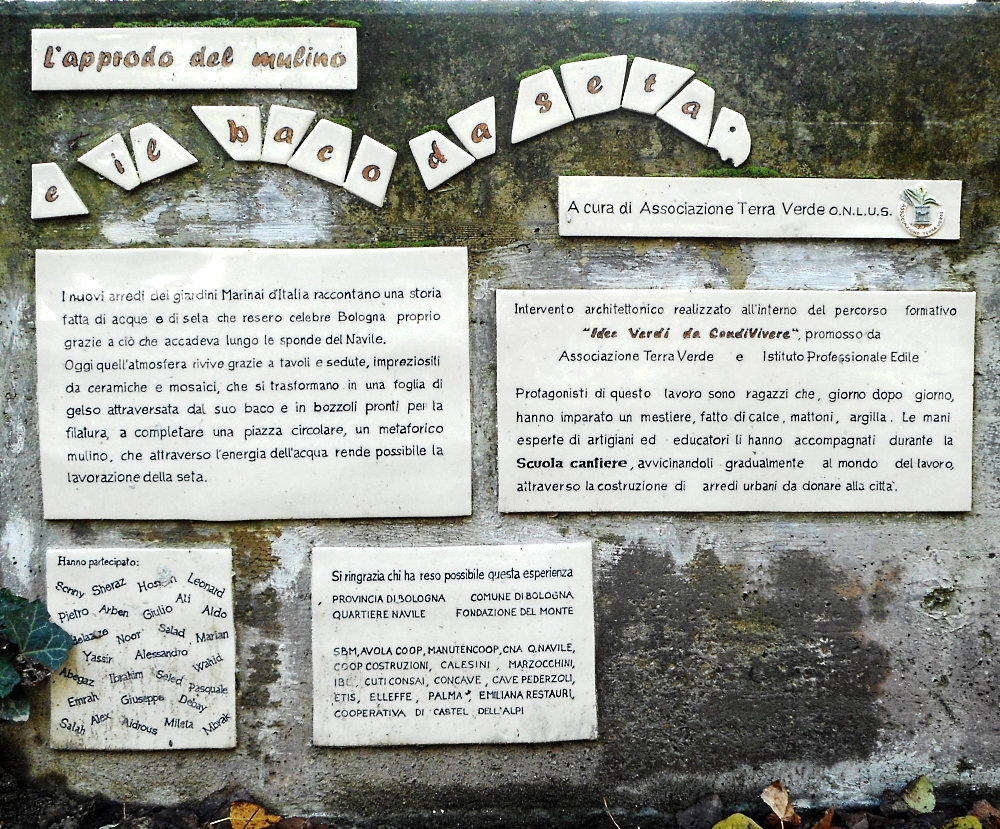 L'approdo del mulino
e il baco da seta
A cura di Associazione Terra Verde O.N.L.U.S.
ASSOCIAZIONE TERRA VERDE
I nuovi arredi dei giardini Marinai d'Italia raccontano una storia
fatta di acque e di seta che resero celebre Bologna proprio
grazie a ciò che accadeva lungo le sponde del Navile.
Oggi quell'atmosfera rivive grazie a tavoli e sedute, impreziositi
da ceramiche e mosaici, che si trasformano in una foglia di
gelso attraversata dal suo baco e in bozzoli pronti per la
filatura, a completare una piazza circolare, un metaforico
mulino, che attraverso l'energia dell'acqua rende possibile la
lavorazione della seta.
Intervento architettonico realizzato all'interno del percorso formativo
"Idee Verdi da CondiVivere", promosso da
Associazione Terra Verde e Istituto Professionale Edile
Protagonisti di questo lavoro sono ragazzi che, giorno dopo giorno,
hanno imparato un mestiere, fatto di calce, mattoni, argilla. Le mani
esperte di artigiani ed educatori li hanno accompagnati durante la
Scuola cantiere, avvicinandoli gradualmente al mondo del lavoro,
attraverso la costruzione di arredi urbani da donare alla citta'.
Hanno partecipato:
Sonny Sheraz Leonard
Pietro Arben Giulio Ali Aldo
Noor Salad Marian
Yassir Alessandro Wahid
Abegaz Ibrahim Seied Pasquale
Emrah Giuseppe Debay
Salah Alex Aidrous Mileta Mbrak
Si ringrazia chi ha reso possibile questa esperienza
PROVINCIA DI BOLOGNA COMUNE DI BOLOGNA
QUARTIERE NAVILE FONDAZIONE DEL MONTE
SBM, AVOLA COOP, MANUTENCOOP, CNA Q.NAVILE,
COOP COSTRUZIONI, CALESINI, MARZOCCHINI,
CUTICONSAI, CONCAVE, CAVE PEDERZOLI,
ETIS, ELLEFFE, PALMA, EMILIANA RESTAURI,
COOPERATIVA DI CASTEL DELL'ALPI